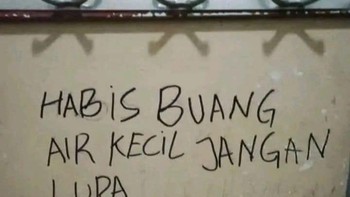 HABIS BUANG
AIR KECIL JANGAN
LUPA